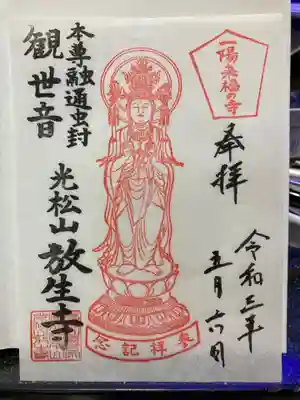 一陽来福の寺
奉拝
令和三年
五月六日
本尊融通虫封
観世音
光松山 放生寺
參拝記念